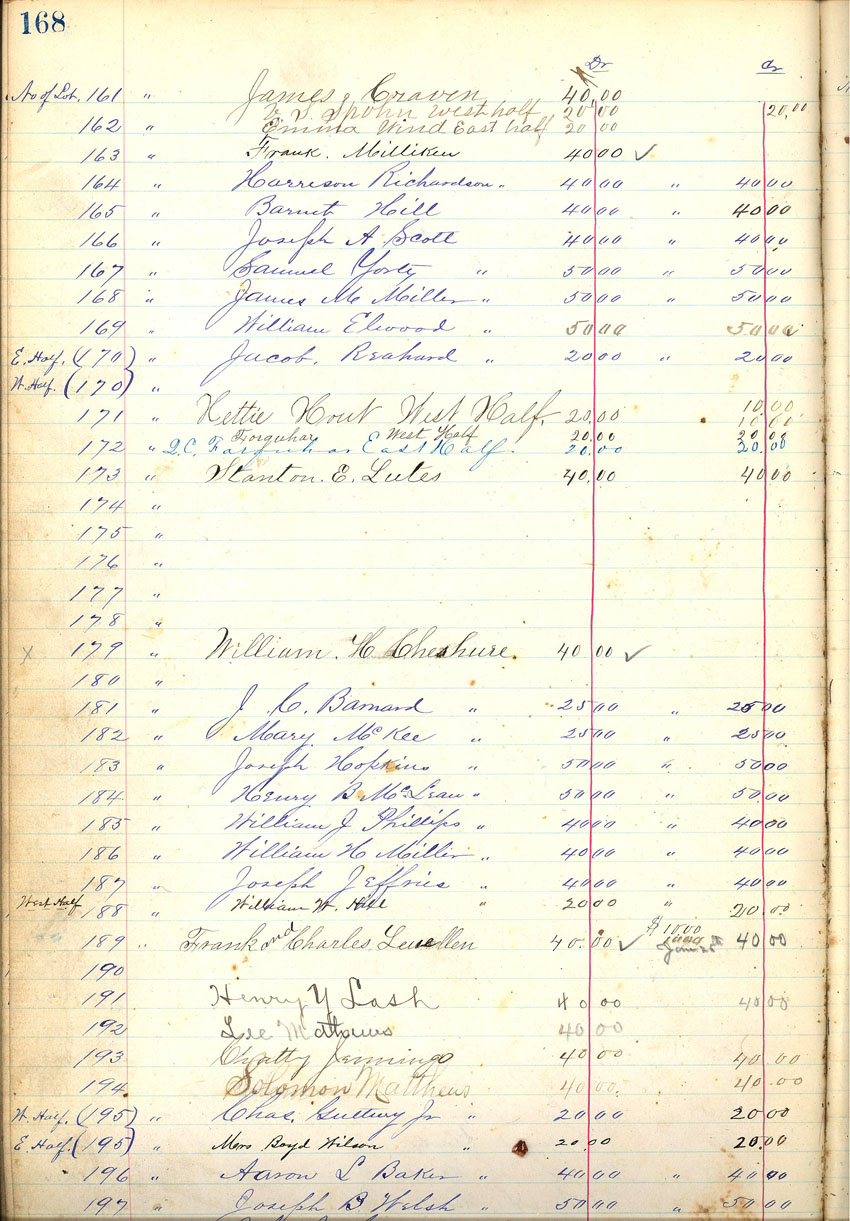 168
Dr Cr
No of Lot. 161 " James Craven 40.00
V. S. Spohn West half 20.00 20.00
162 " Emma Wind East half 20 00
163 " Frank. Milliken 40 00 ✓
164 " Harreson Richardson " 40 00 " 40 00
165 " Barnet Hill 40 00 " 40 00
166 " Joseph A Scott 40 00 " 40 00
167 " Samuel Yorty " 50 00 " 50 00
168 " James M Miller " 50 00 " 50 00
169 " William Elwood " 50 00 50 00
E. Half. (170) " Jacob. Reahard " 20 00 " 20 00
W. Half. (170) "
10.00
171 " Hettie Hout West Half. 20.00 10 00
Forquhar West Half 20.00 20 00
172 " Q.C. Farquhar East Half. 20.00 20.00
173 " Stanton. E. Lutes 40.00 40 00
174 "
175 "
176 "
177 "
178 "
x 179 " William. H. Cheshure. 40 00 ✓
180 "
181 " J. C. Barnard " 25 00 " 25 00
182 " Mary McKee " 25 00 " 25 00
183 " Joseph Hopkins " 50 00 " 50 00
184 " Henry B McLean " 50 00 " 50 00
185 " William J Phillips " 40 00 " 40 00
186 " William H Miller " 40 00 " 40 00
187 " Joseph Jeffries " 40 00 " 40 00
West Half 188 " William W. Hill " 20 00 " 20.00
$10 00
189 " Frank and Charles Lewellen 40.00 ✓ 40 00
190
191 Henry Y Lash 40 00 40 00
192 Lee Mathews 40 00
193 Chatty Jennings 40 00 40 00
194 Solomon Matthews 40 00. 40.00
W. Half. (195) " Chas. Jr " 20 00 20 00
E. Half. (195) " Mrs Boyd Wilson " 20.00 20.00
196 " Aaron L Baker " 40 00 " 40 00
197 " Joseph B Welsh " 50 00 " 50 00